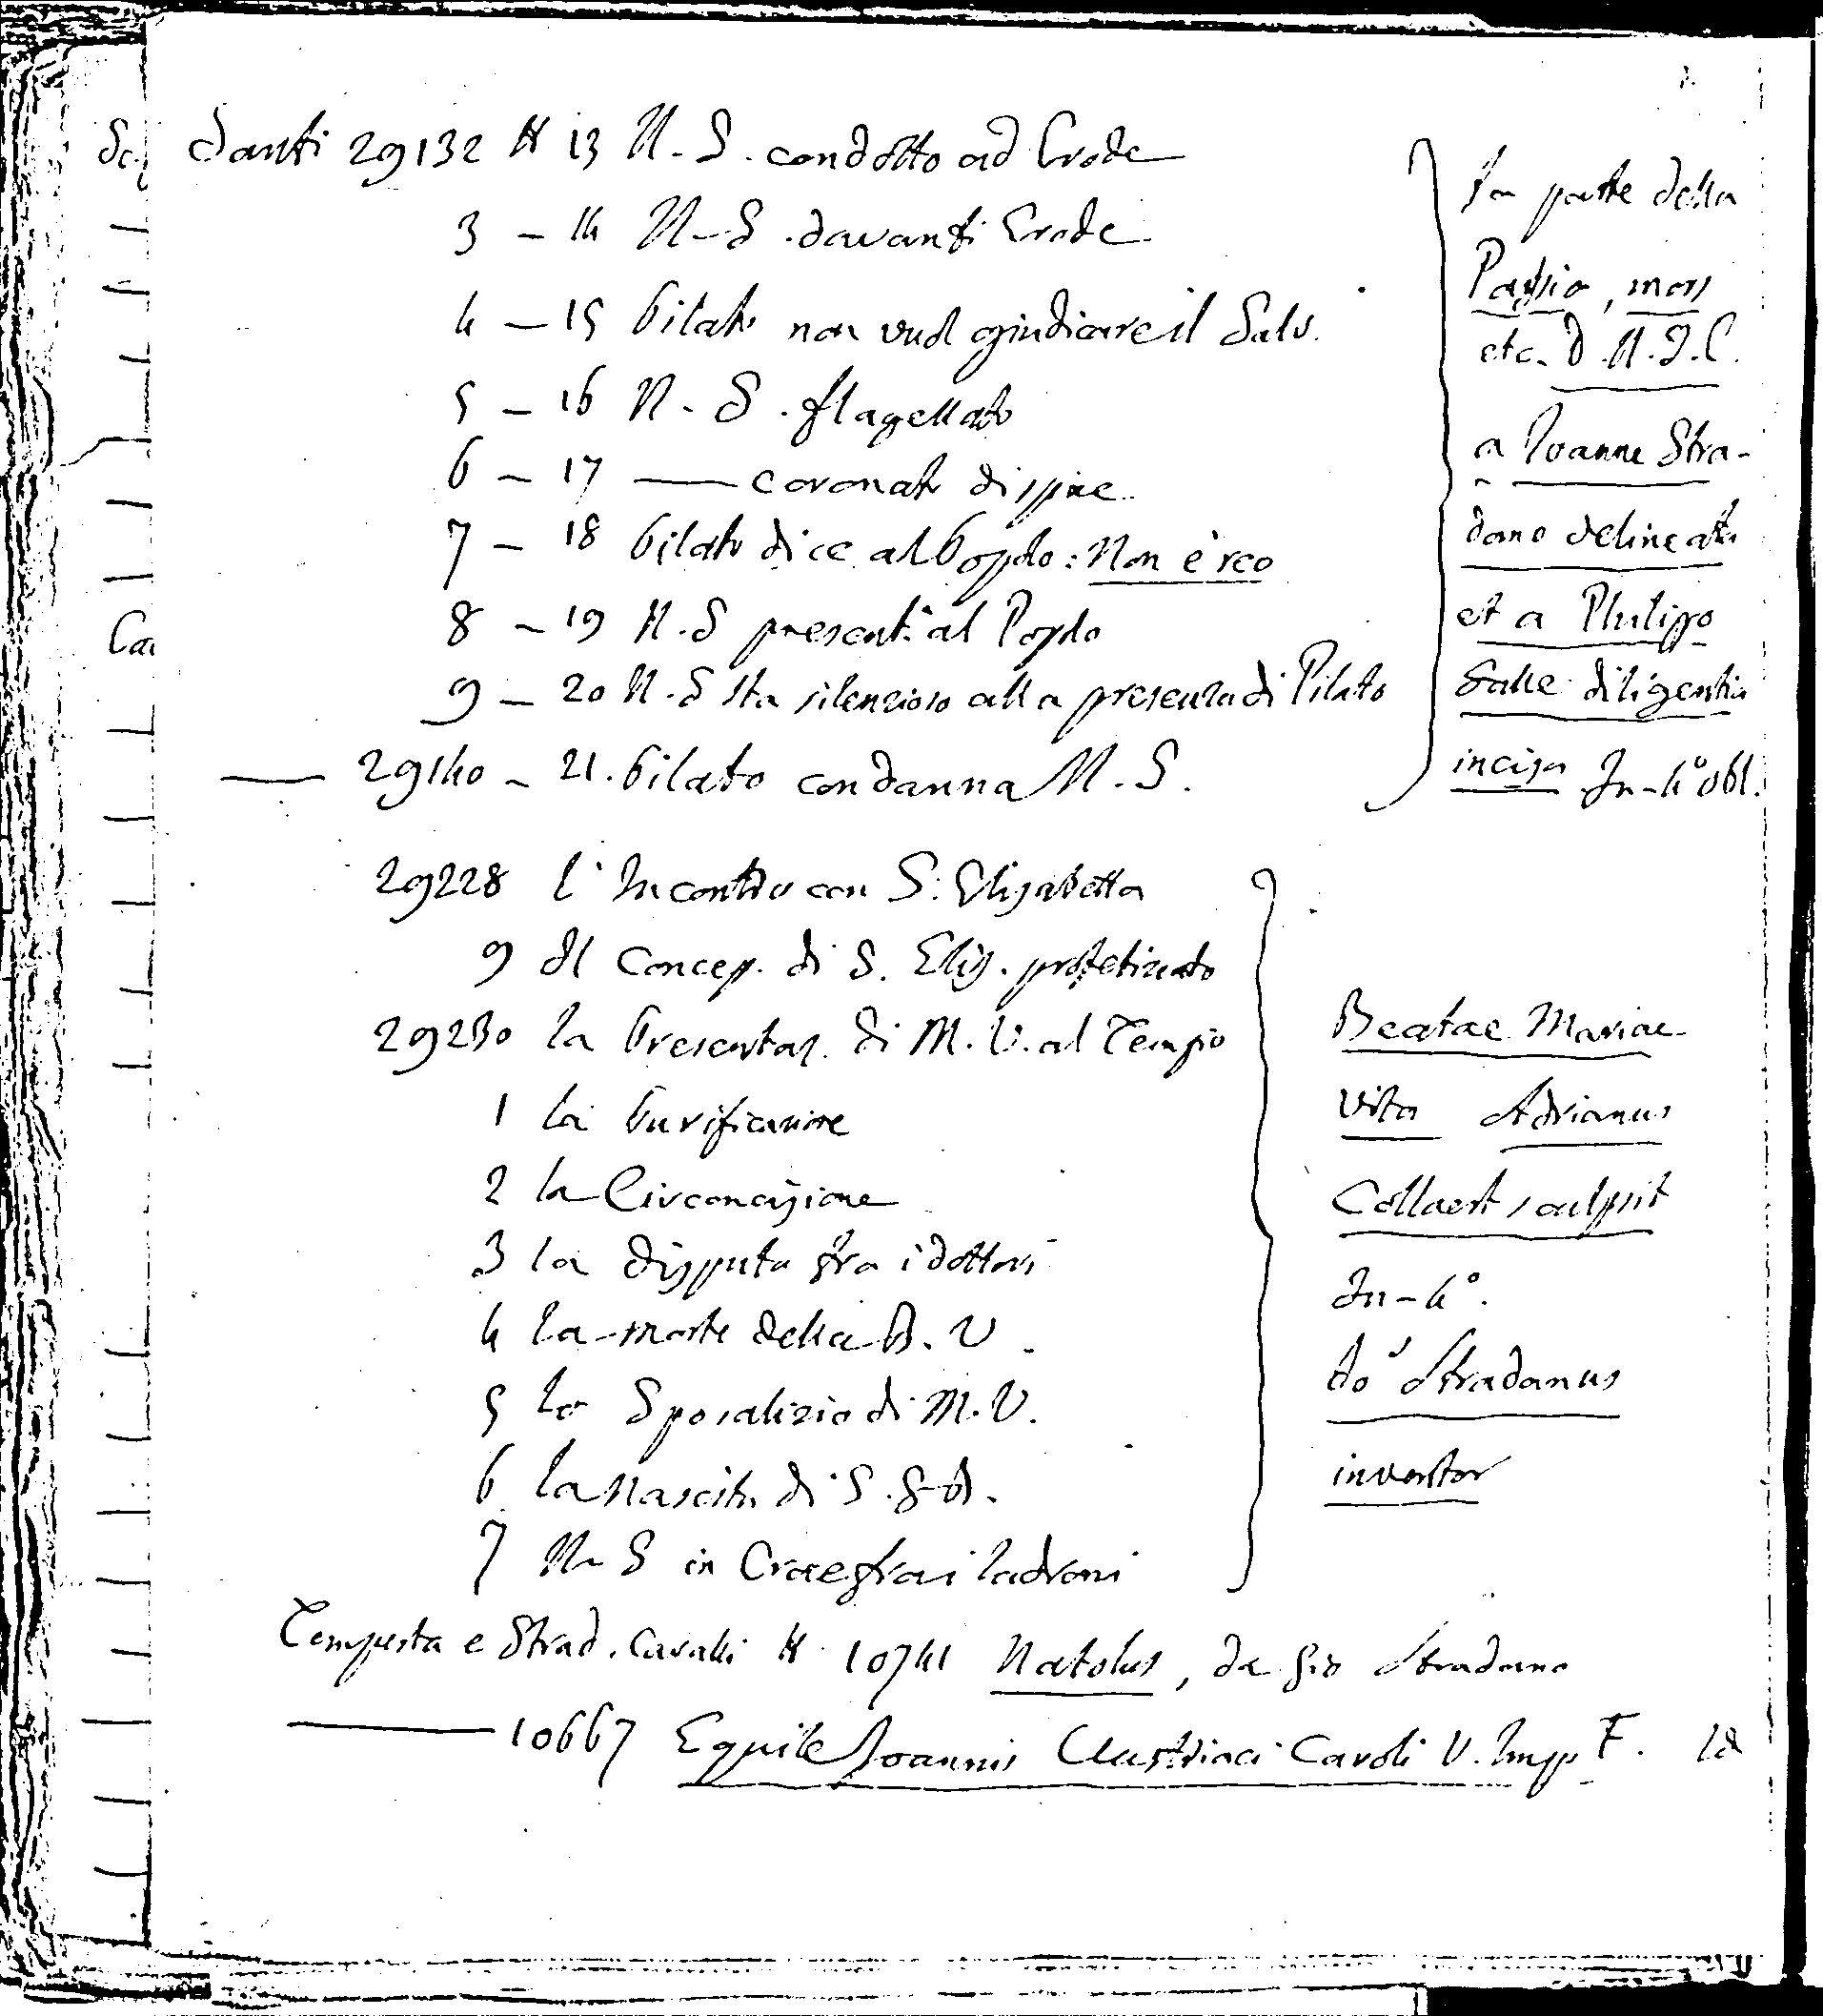 Santi 29132 H 13 N. S. condotto ad Erode
3 – 14 N. S. davanti Erode
4 – 15 Pilato non vuol giudicare il Salv.
5 – 16 N. S. flagellato
6 – 17 — coronato di spine
7 – 18 Pilato dice al Popolo: Non è reo
8 – 19 N. S present. al Popolo
9 – 20 N. S sta silenzioso alla presenza di Pilato
— 29140 – 21. Pilato condanna N. S.
fa parte della
Passio, mors
etc. D. N. J. C.
a Joanne Stra-
dano delineata
et a Philippo
Galle diligentia
incisa In-4° obl.
29228 L'Incontro con S. Elisabetta
9 Il Concep. di S. Elis. profetizzato
29230 La Presentaz. di M. V. al Tempio
1 La Purificazione
2 La Circoncisione
3 La disputa fra i dottori
4 La morte della B. V.
5 Lo Sposalizio di M. V.
6 La nascita di S. G. B.
7 N. S in Croce fra i ladroni
Beatae Mariae
Vita Adrianus
Collaert sculpsit
In-4°.
Stradanus
inventor
Tempesta e Strad. Cavalli H 10741 Natolus, da Gio Stradano
— 10667 Equile Joannis Austriaci Caroli V. Imp. F. Id